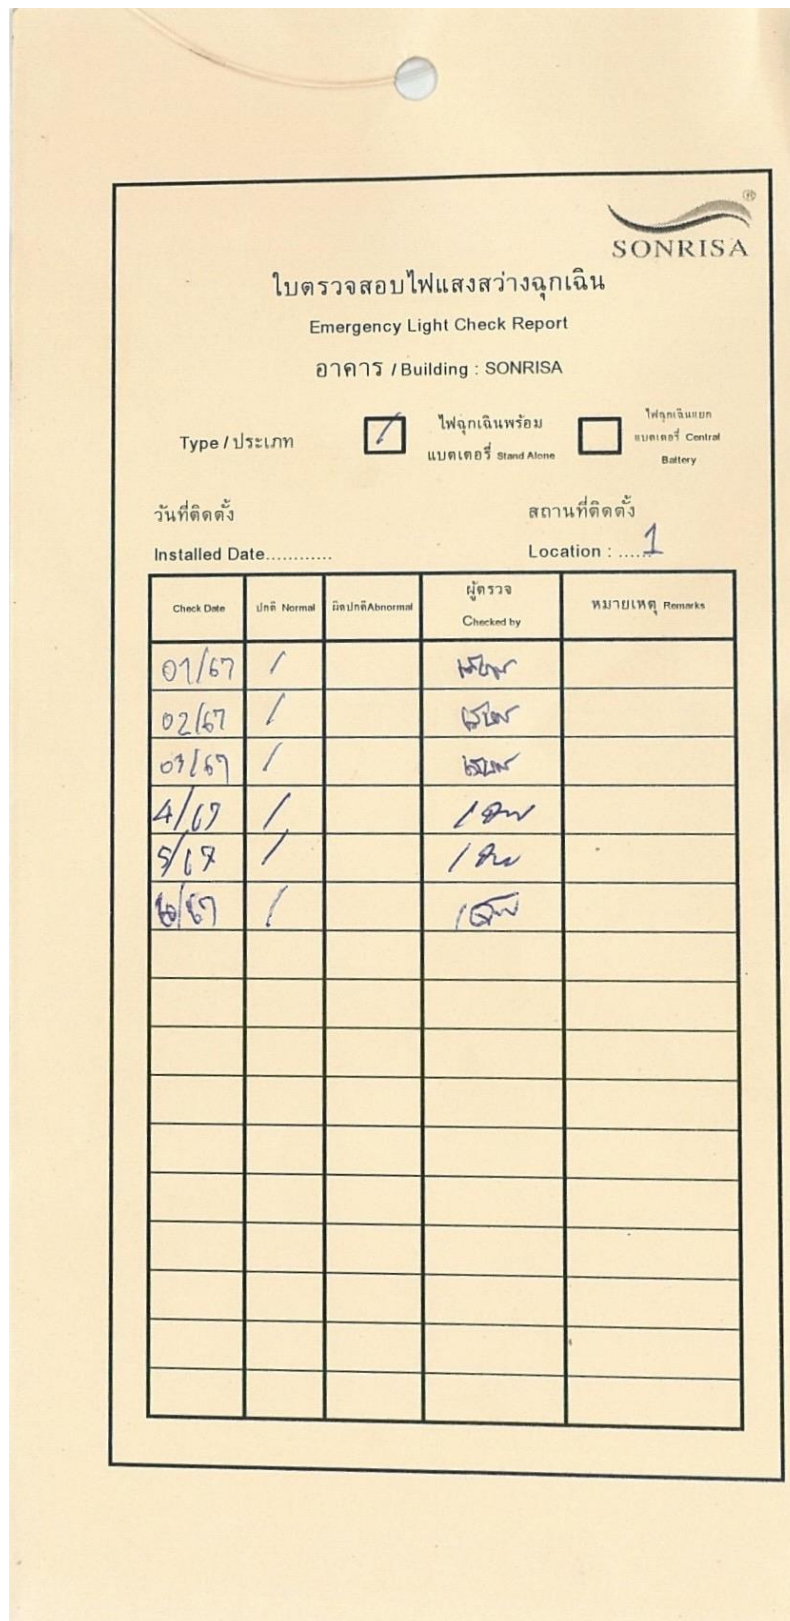 ®
SONRISA
ใบตรวจสอบไฟแสงสว่างฉุกเฉิน
Emergency Light Check Report
อาคาร / Building : SONRISA
Type / ประเภท / ไฟฉุกเฉินพร้อม แบตเตอรี่ Stand Alone ไฟฉุกเฉินแยก แบตเตอรี่ Central Battery
วันที่ติดตั้ง สถานที่ติดตั้ง
Installed Date............ Location : ...... 1
Check Date ปกติ Normal ผิดปกติAbnormal ผู้ตรวจ Checked by หมายเหตุ Remarks
01/67 /
02/67 /
03/67 /
4/67 /
5/67 /
6/67 /